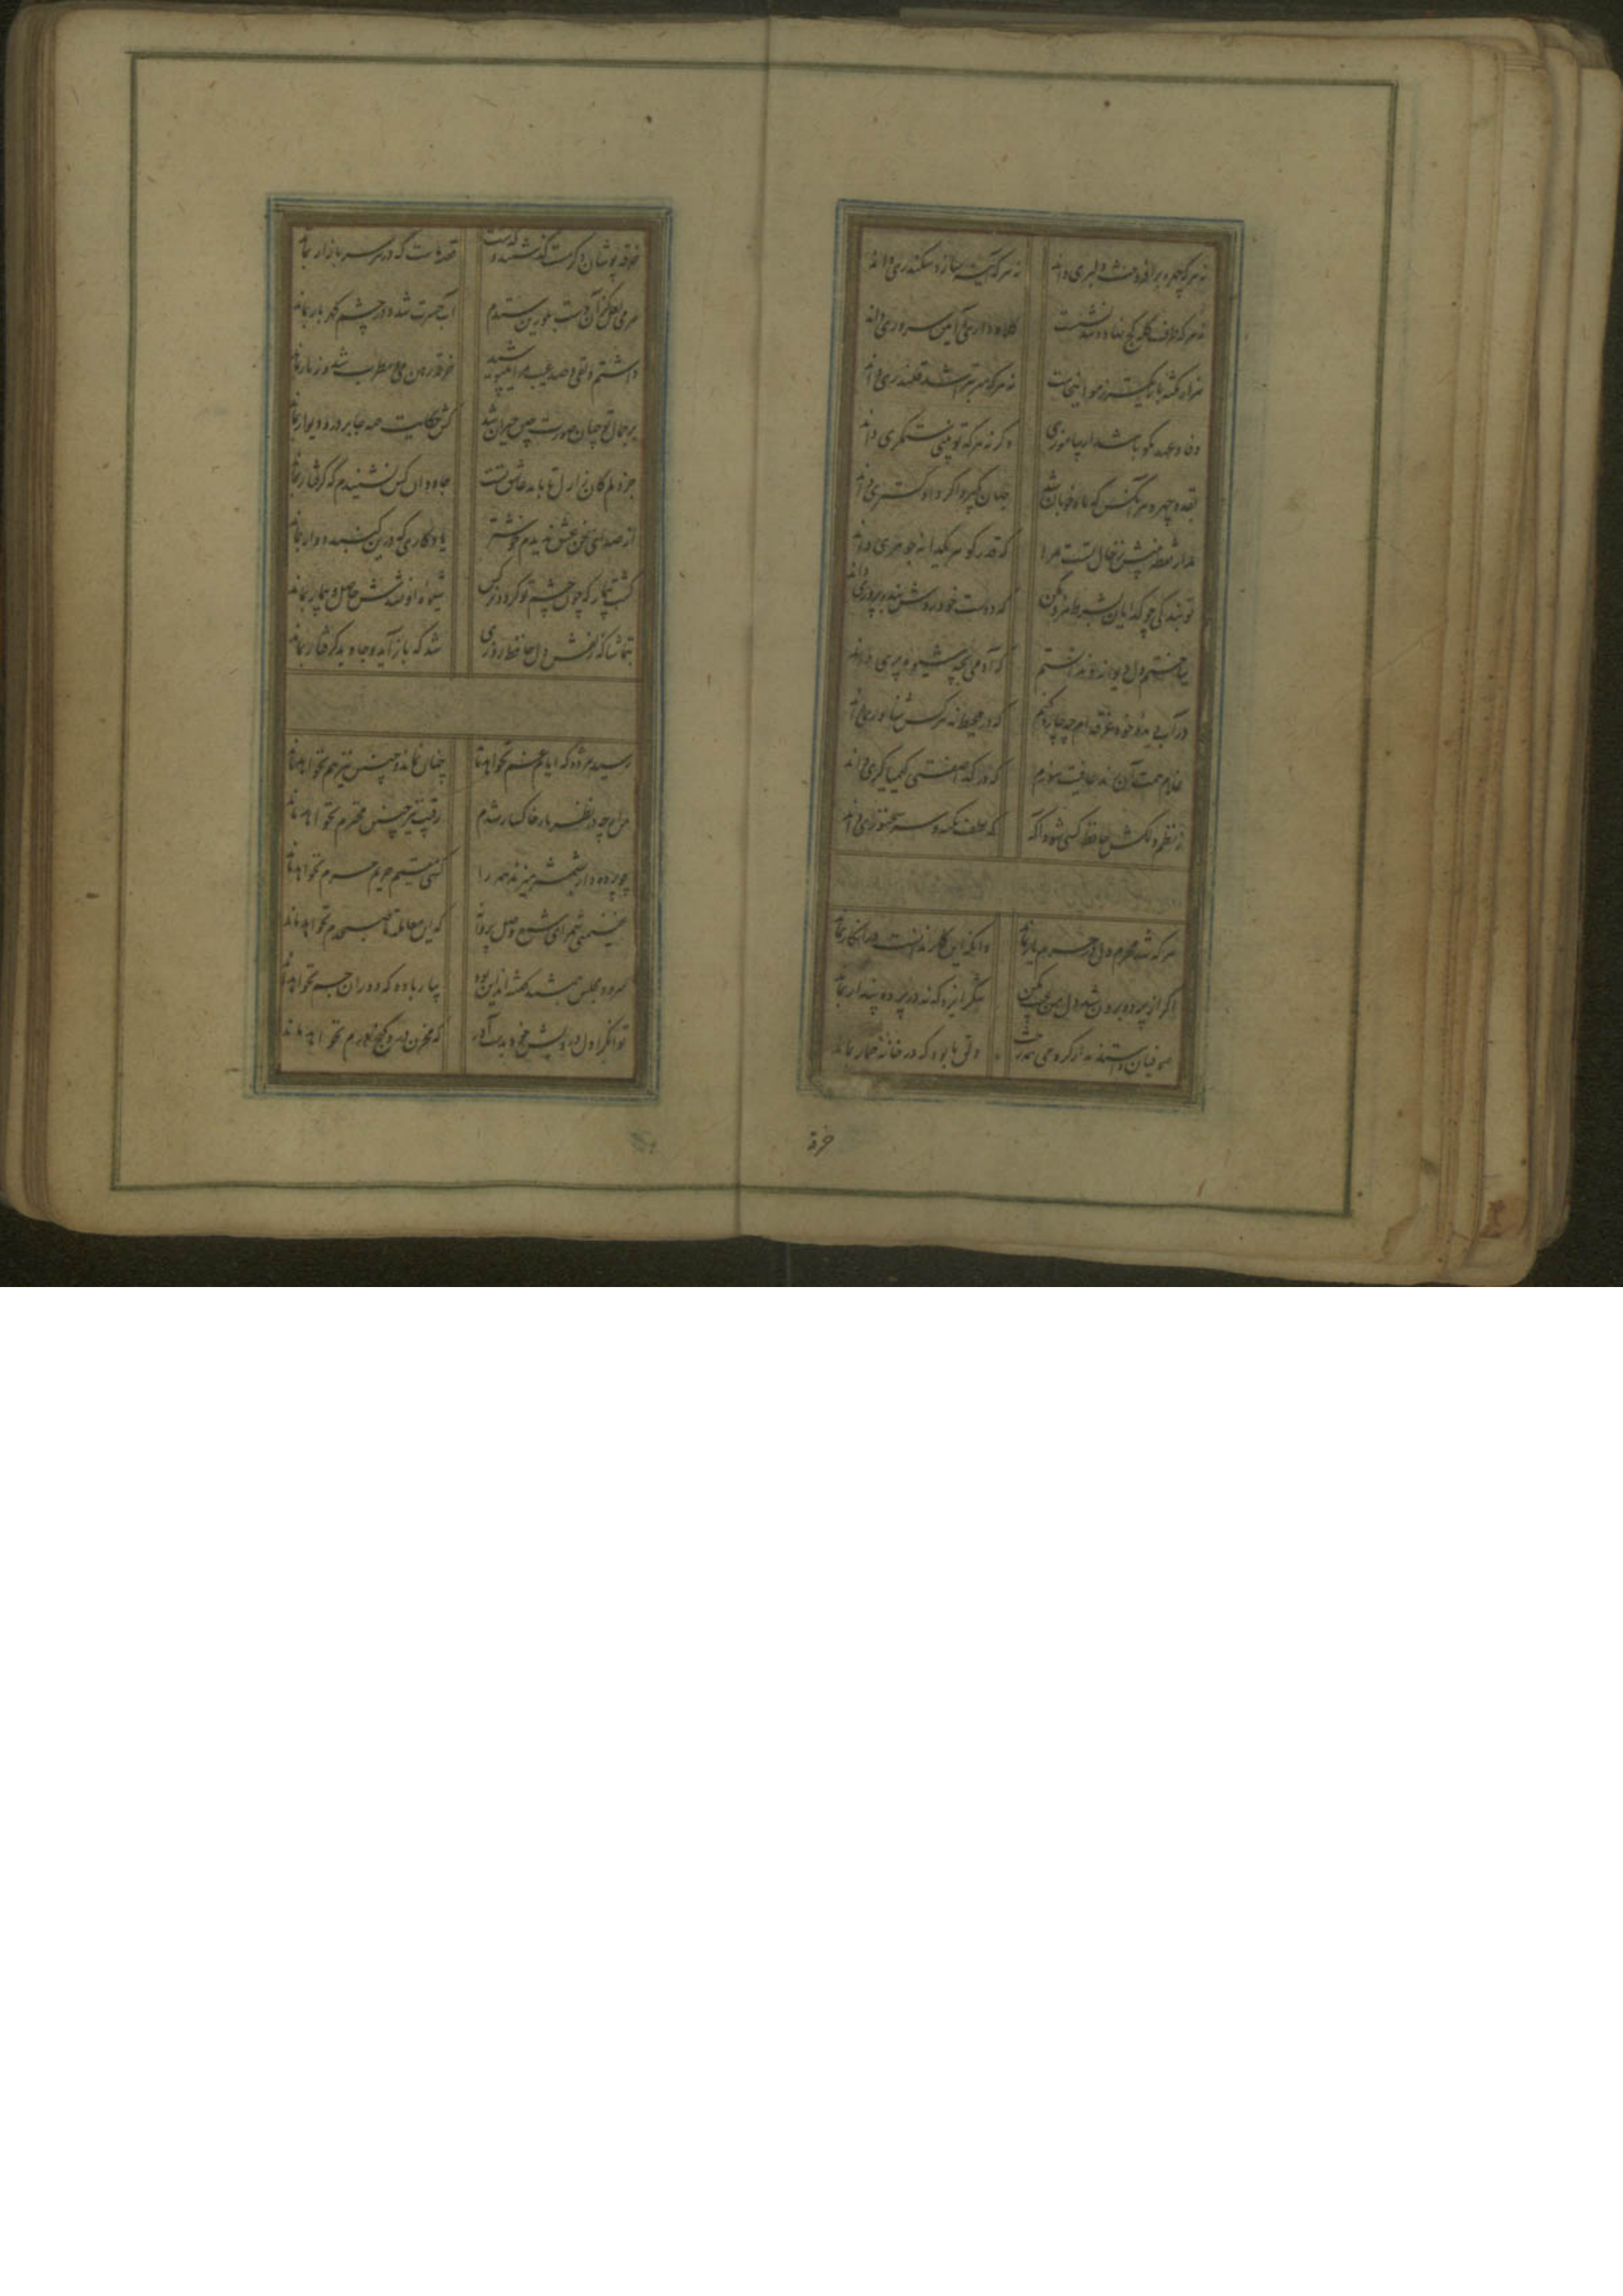 نه هر که چهره برافروخت دلبری داند نه هر که آینه سازد سکندری داند
نه هر که طرف کله کج نهاد و تند نشست کلاه داری و آیین سروری داند
هزار نکته باریکتر ز مو اینجاست نه هر که سر بتراشد قلندری داند
وفا و عهد نکو باشد ار بیاموزی وگرنه هر که تو بینی ستمگری داند
بقد و چهره هر آنکس که شاه خوبان شد جهان بگیرد اگر دادگستری داند
مدار نقطه بینش ز خال تست مرا که قدر گوهر یکدانه جوهری داند
تو بندگی چو گدایان بشرط مزد مکن که دوست خود روش بنده پروری داند
بباختم دل دیوانه و ندانستم که آدمی بچه شیوه پری داند
در آب دیده خود غرقه ام چه چاره کنم که در محیط نه هر کس شناوری داند
غلام همت آن رند عافیت سوزم که در گدا صفتی کیمیاگری داند
ز نظم دلکش حافظ کسی شود آگه که لطف نکته و سر سخنوری داند
هر که شد محرم دل در حرم یار بماند وانکه این کار ندانست در انکار بماند
اگر از پرده برون شد دل من عیب مکن شکر ایزد که نه در پرده پندار بماند
صوفیان واستدند از گرو می همه رخت دلق ما بود که در خانه خمار بماند
خرقه
خرقه پوشان دگر مست گذشتند و گذشت قصه ماست که در هر سر بازار بماند
هر می لعل کز آن دست بلورین ستدم آب حسرت شد و در چشم گهربار بماند
داشتم دلقی و صد عیب مرا میپوشید خرقه رهن می و مطرب شد و زنار بماند
بر جمال تو چنان صورت چین حیران شد کش حکایت همه جا بر در و دیوار بماند
جز دلم کان ز ازل تا به ابد عاشق تست جاودان کس نشنیدم که گرفتار بماند
از صدای سخن عشق ندیدم خوشتر یادگاری که درین گنبد دوار بماند
گشت بیمار که چون چشم تو گردد نرگس شیوه او نشدش حاصل و بیمار بماند
بتماشاگه زلفش دل حافظ روزی شد که باز آید و جاوید گرفتار بماند
رسید مژده که ایام غم نخواهد ماند چنان نماند و چنین نیز هم نخواهد ماند
من ار چه در نظر یار خاکسار شدم رقیب نیز چنین محترم نخواهد ماند
چو پرده دار بشمشیر میزند همه را کسی مقیم حریم حرم نخواهد ماند
غنیمتی شمر ای شمع وصل پروانه که این معامله تا صبحدم نخواهد ماند
سرود مجلس جمشید گفته اند این بود بیار باده که دوران جم نخواهد ماند
توانگرا دل درویش خود بدست آور که مخزن زر و گنج درم نخواهد ماند